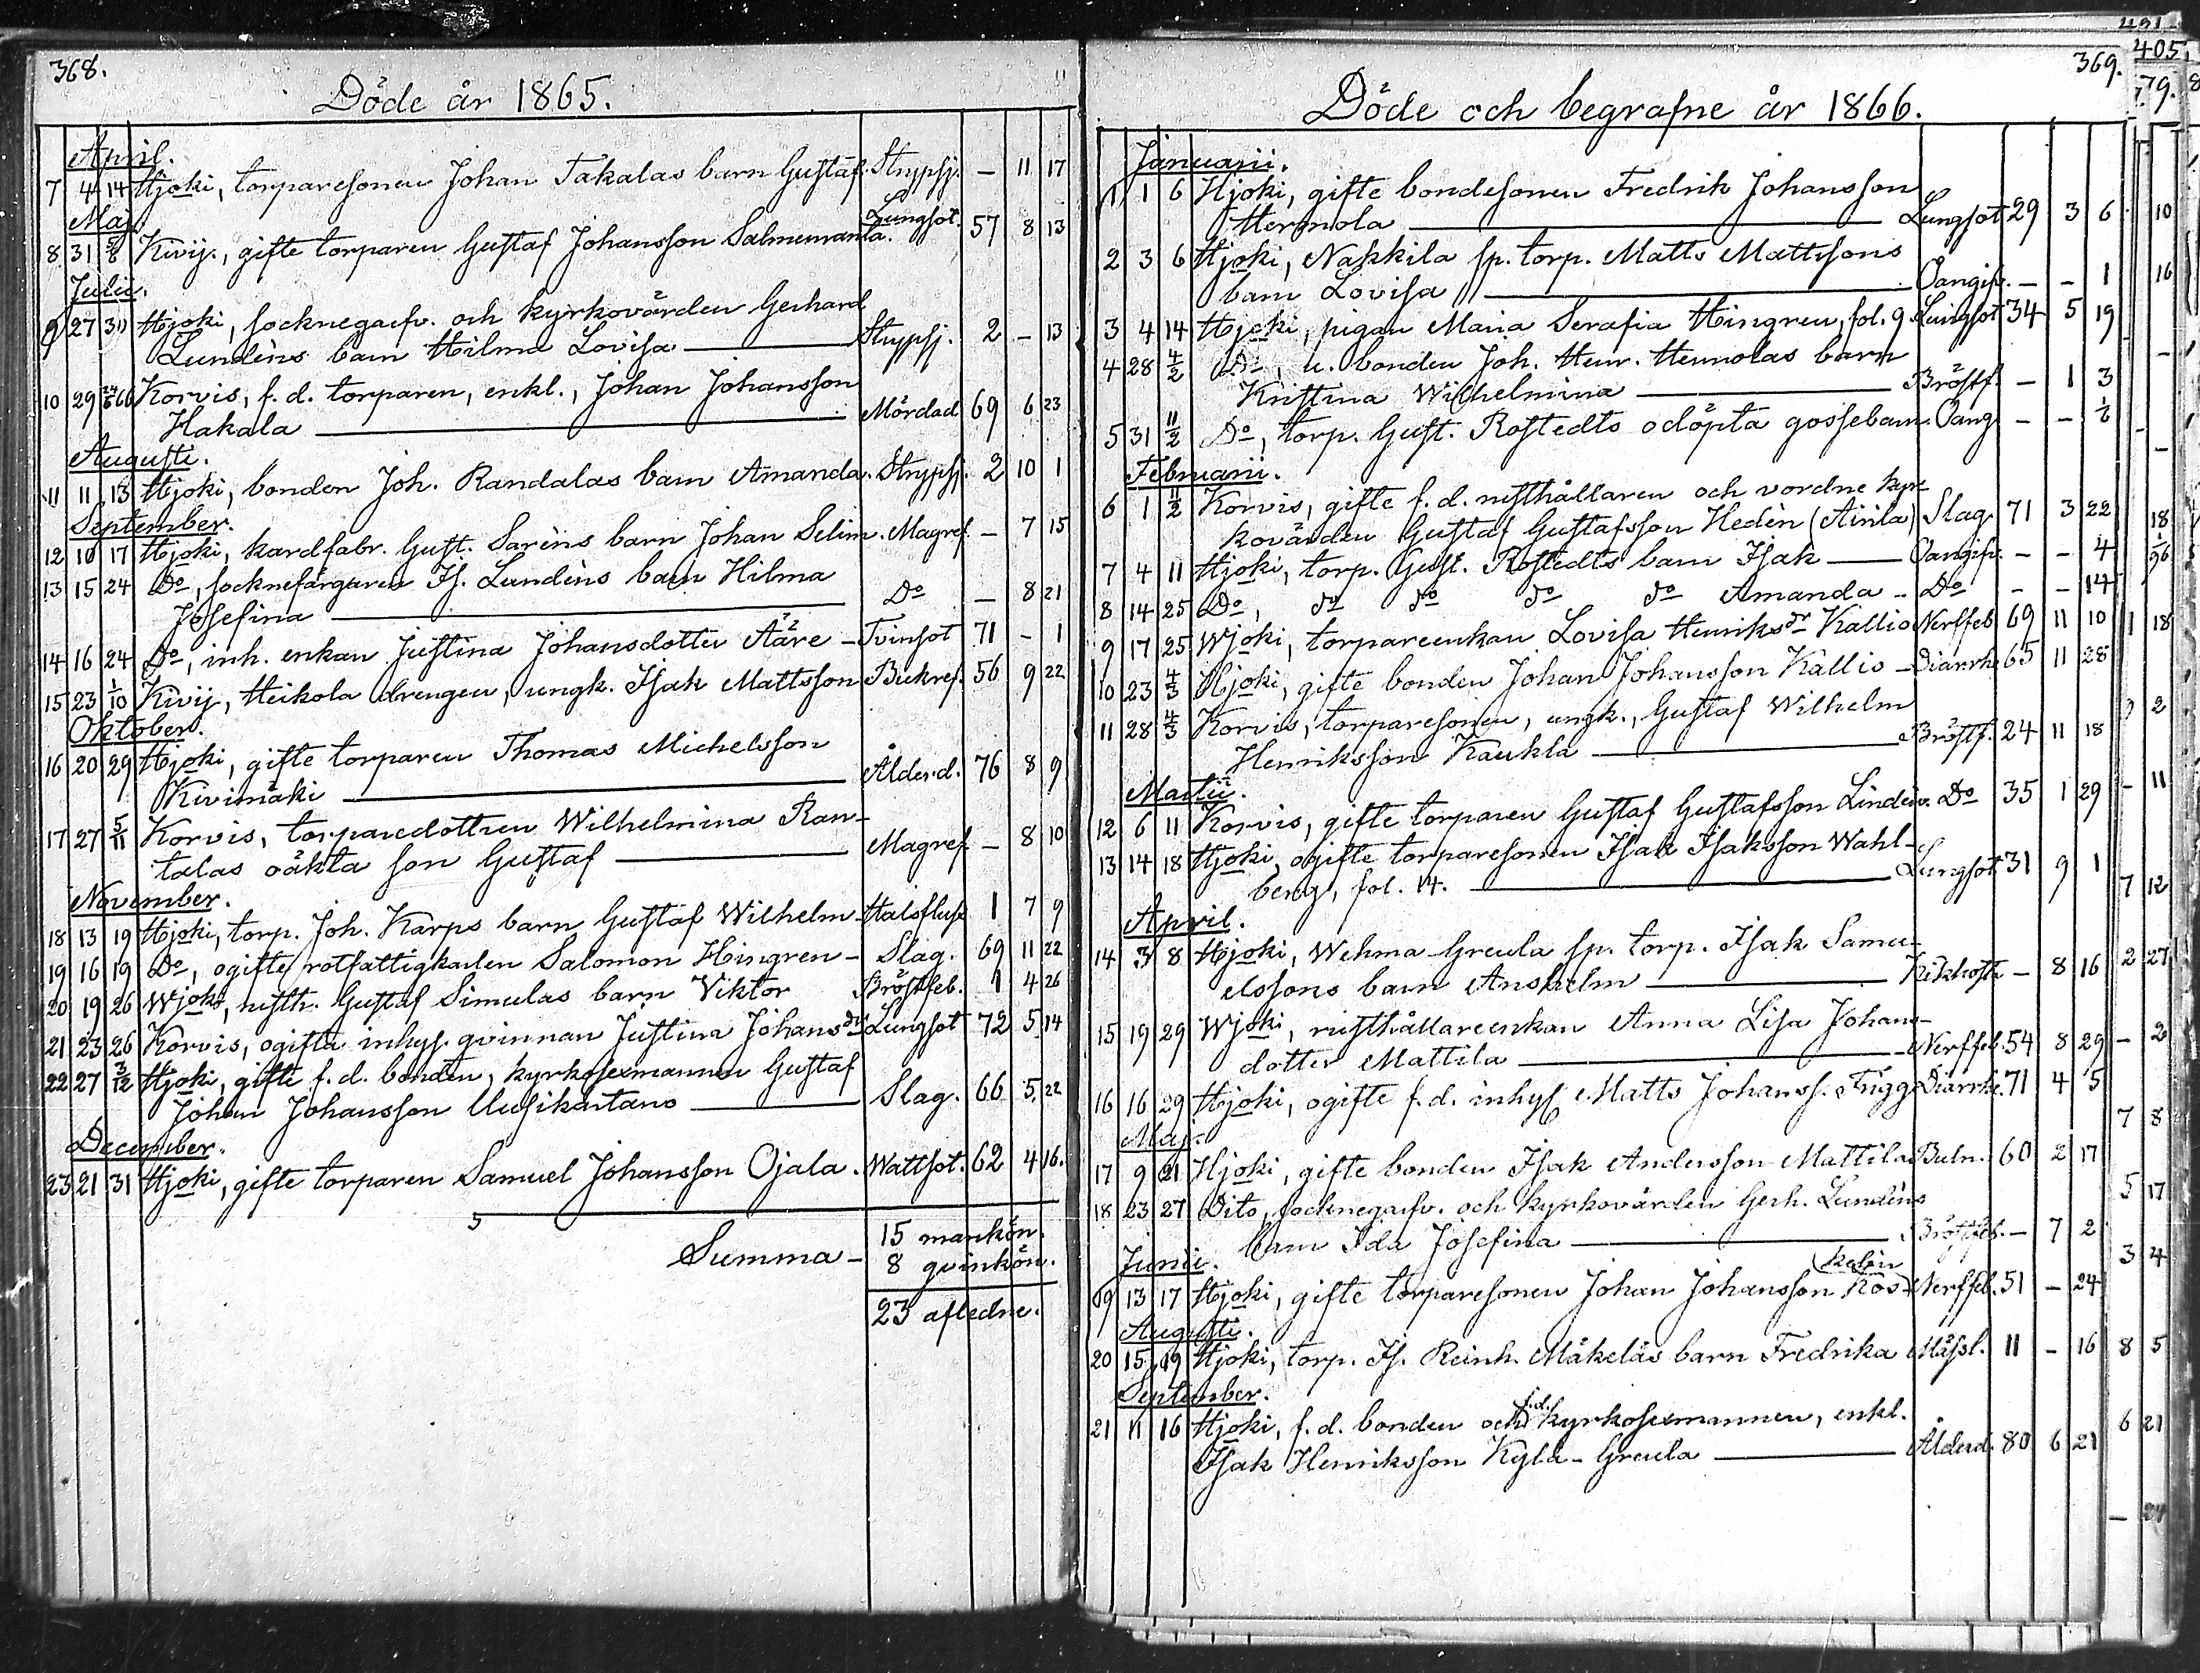 368.
Döde år 1865.
April.
7 4 14 Hjoki, torparesonen Johan Takalas barn Gustaf. Strypsj. — 11 17
Maj.
8 31 5/6 Kivij., gifte torparen Gustaf Johansson Salmemanla. Lungsot. 57 8 13
Julii.
9 27 30 Hjoki, socknegarfv. och kyrkovärden Gerhard
Lundèns barn Hilma Lovisa — Strypsj. 2 — 13
10 29 24/6 66 Korvis, f. d. torparen, enkl., Johan Johansson
Hakala — Mördad 69 6 23
Augusti.
11 11 13 Hjoki, bonden Joh. Randalas barn Amanda. Strypsj. 2 10 1
September.
12 10 17 Hjoki, kardfabr. Gust. Sarèns barn Johan Selim. Magref. — 7 15
13 15 24 Do, socknefärgaren Is. Lundèns barn Hilma
Josefina — Do — 8 21
14 16 24 Do, inh. enkan Justina Johansdotter Ääre — Tvinsot 71 — 1
15 23 1/10 Kivij, Heikola drengen, ungk. Isak Mattsson Bukref. 56 9 22
Oktober.
16 20 29 Hjoki, gifte torparen Thomas Michelsson
Kivimäki — Ålderd. 76 8 9
17 27 5/11 Korvis, torparedottren Wilhelmina Ran-
talas oäkta son Gustaf — Magref. — 8 10
November.
18 13 19 Hjoki, torp. Joh. Karps barn Gustaf Wilhelm. Halsfluss 1 7 9
19 16 19 Do, ogifte rotfattigkarlen Salomon Hingren — Slag. 69 11 22
20 19 26 Wjoki, rusth. Gustaf Simulas barn Viktor Bröstfeb. 1 4 26
21 23 26 Korvis, ogifta inhys. qvinnan Justina Johansdr Lungsot 72 5 14
22 27 3/12 Hjoki, gifte f. d. bonden, kyrkosexmannen Gustaf
Johan Johansson Uusikartano — Slag. 66 5 22
December.
23 21 31 Hjoki, gifte torparen Samuel Johansson Ojala. Wattsot. 62 4 16.
Summa — 15 mankön.
8 qvinkön.
23 afledne.
369.
Döde och begrafne år 1866.
Januarii.
1 1 6 Hjoki, gifte bondesonen Fredrik Johansson
Hermola — Lungsot 29 3 6
2 3 6 Hjoki, Nakkila sp. torp. Matts Mattssons
barn Lovisa — Oangifv. — — 1
3 4 14 Hjoki, pigan Maria Serafia Hingren, fol. 9. Lungsot 34 5 19
4 28 4/2 Do, u. bonden Joh. Henr. Hermolas barn
Kristina Wilhelmina — Bröstf. — 1 3
5 31 11/2 Do, torp. Gust. Rostedts odöpta gossebarn. Oang. — —
Februarii.
6 1 11/2 Korvis, gifte f. d. rusthållaren och vordne kyr-
kovärden Gustaf Gustafsson Hedèn (Airila) Slag. 71 3 22
7 4 11 Hjoki, torp. Gust. Rostedts barn Isak — Oangifv. — — 4
8 14 25 Do, do do do do Amanda — Do — — 14
9 17 25 Wjoki, torpareenkan Lovisa Henriksdr Kallio Nerffeb. 69 11 10
10 23 4/3 Hjoki, gifte bonden Johan Johansson Kallio — Diarrhé 65 11 28
11 28 4/3 Korvis, torparesonen, ungk., Gustaf Wilhelm
Henriksson Kaukla — Bröstf. 24 11 18
Martii.
12 6 11 Korvis, gifte torparen Gustaf Gustafsson Lindèn. Do 35 1 29
13 14 18 Hjoki, ogifte torparesonen Isak Isaksson Wahl-
berg, fol. 14. — Lungsot 31 9 1
April.
14 3 8 Hjoki, Wehma-Greula sp. torp. Isak Samu-
elssons barn Anshelm — Kikhosta — 8 16
15 19 29 Wjoki, rusthållareenkan Anna Lisa Johans-
dotter Mattila — Nerffeb. 54 8 29
16 16 29 Hjoki, ogifte f. d. inhys. Matts Johanss. Trygg Diarrhé. 71 4 5
Maj.
17 9 21 Hjoki, gifte bonden Isak Andersson Mattila Buln. 60 2 17
18 23 27 Dito, socknegarfv. och kyrkovärden Gerh. Lundèns
barn Ida Josefina — Bröstfeb. — 7 2
Junii.
19 13 17 Hjoki, gifte torparesonen Johan Johansson Kos- (kelin Nerffeb. 51 — 24
Augusti.
20 15 19 Hjoki, torp. Is. Reinh. Mäkeläs barn Fredrika Mässl. 11 — 16
September.
21 11 16 Hjoki, f. d. bonden och f.d. kyrkosexmannen, enkl.
Isak Henriksson Kylä-Greula — Ålderd. 80 6 21